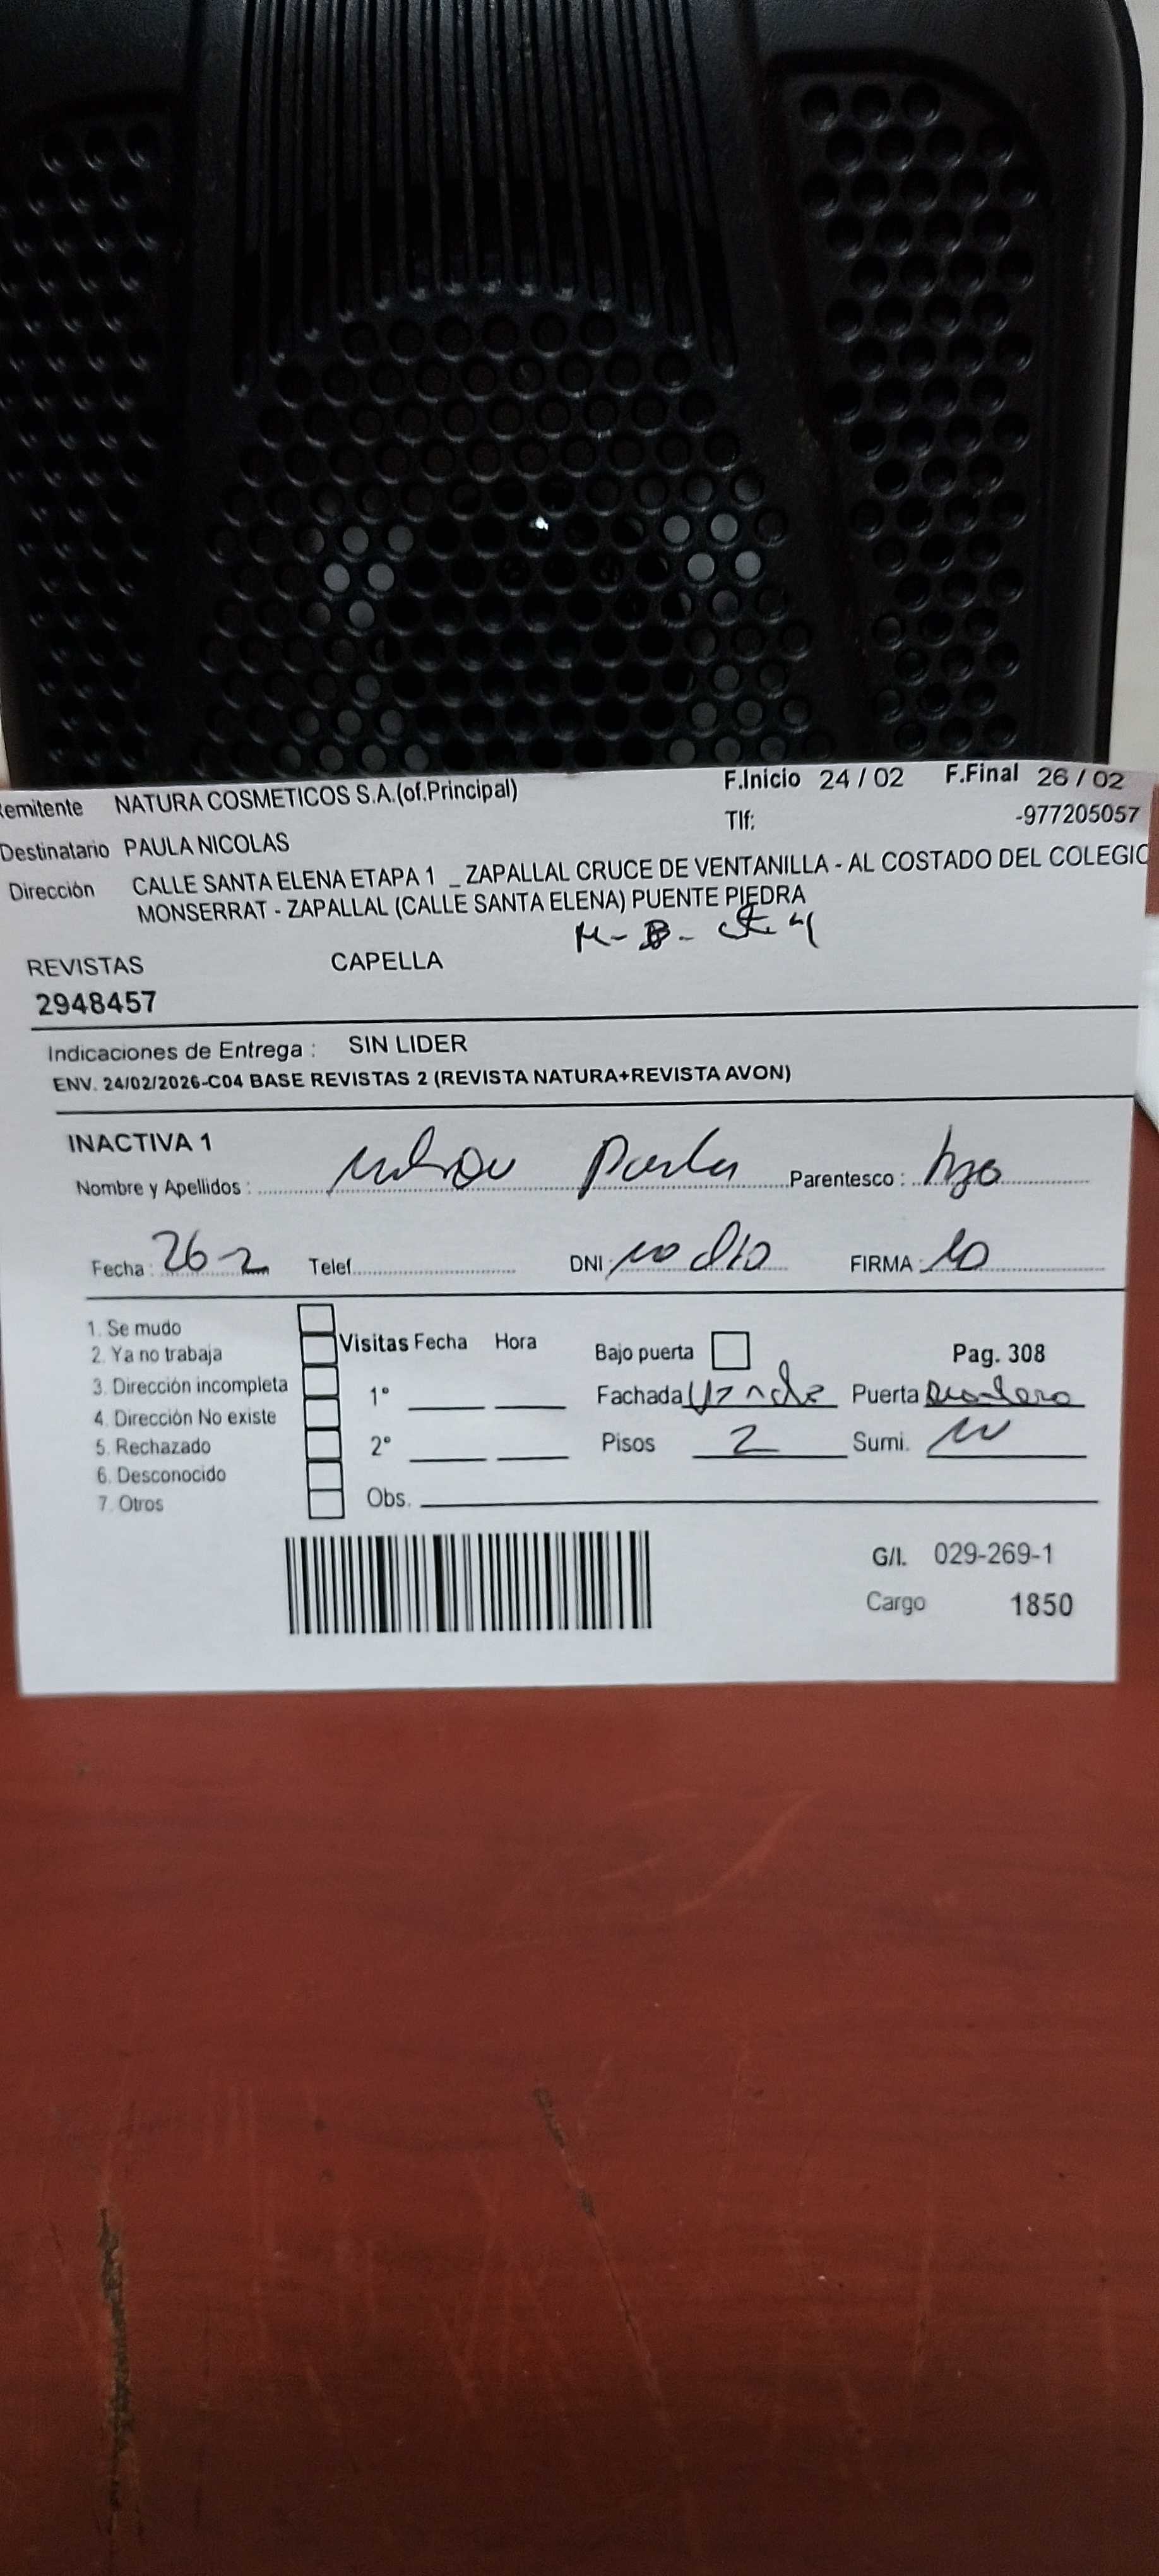 Remitente NATURA COSMETICOS S.A.(of.Principal) F.Inicio 24 / 02 F.Final 26 / 02
Tlf: -977205057
Destinatario PAULA NICOLAS
Dirección CALLE SANTA ELENA ETAPA 1 _ ZAPALLAL CRUCE DE VENTANILLA - AL COSTADO DEL COLEGIO
MONSERRAT - ZAPALLAL (CALLE SANTA ELENA) PUENTE PIEDRA
REVISTAS CAPELLA
2948457
Indicaciones de Entrega : SIN LIDER
ENV. 24/02/2026-C04 BASE REVISTAS 2 (REVISTA NATURA+REVISTA AVON)
INACTIVA 1
Nombre y Apellidos : Parentesco :
Fecha : 26 2 Telef. DNI : no dio FIRMA :
1. Se mudo
2. Ya no trabaja
3. Dirección incompleta
4. Dirección No existe
5. Rechazado
6. Desconocido
7. Otros
Visitas Fecha Hora
1°
2°
Obs.
Bajo puerta Pag. 308
Fachada Puerta
Pisos 2 Sumi.
G/I. 029-269-1
Cargo 1850